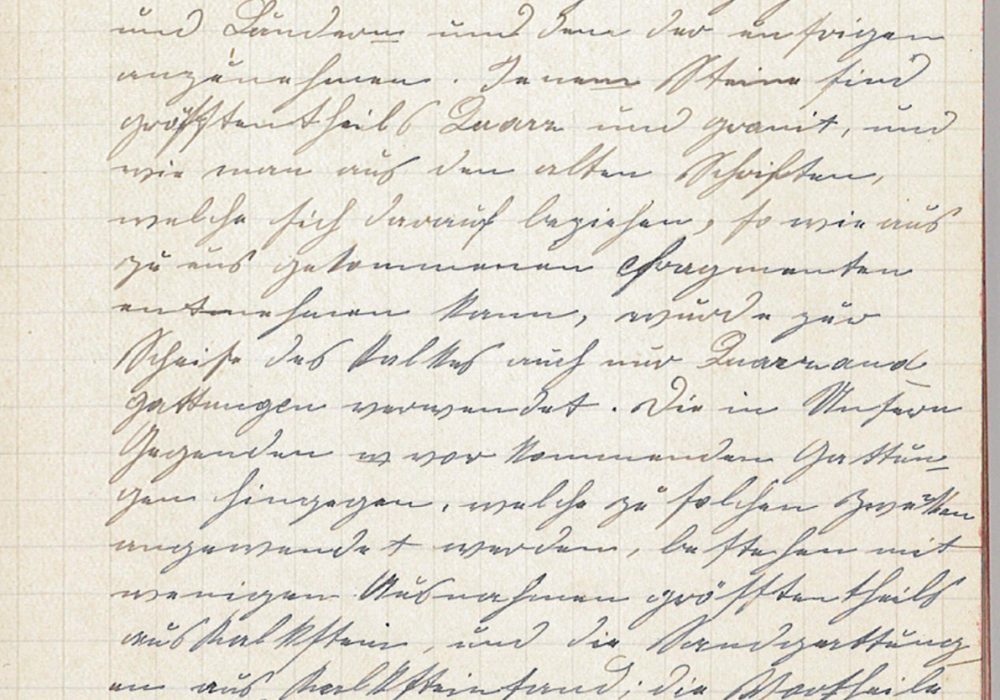 und Ländern und den der unsrigen
anzunehmen. Jenem Steine sind
größtentheils Quarz und granit, und
wie man aus den alten Schriften,
welche sich darauf beziehen, so wie aus
zu uns gekommenen Fragmenten
entnehmen kann, wurde zur
des Kalkes auch nur
gattungen verwendet. Die in Unsern
Gegenden vor kommenden Gattun-
gen hingegen, welche zu solchen Zwecken
angewendet werden, bestehen mit
wenigen Ausnahmen größtentheils
aus Kalkstein, und die Sandgattung
en aus Kalksteinsand; die